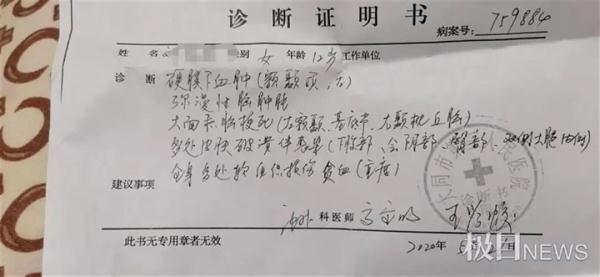 诊断证明书
病案号: 759884
姓名 别 女 年龄 12岁 工作单位
诊断 硬膜下血肿(额颞顶,左)
弥漫性脑肿胀
大面积脑梗死(左额颞、基底节、左颞枕丘脑)
多处皮肤破溃伴感染(下腹部、会阴部、臀部、双侧大腿内侧)
全身多处软组织损伤 贫血(重度)
建议事项
大同市 民医院
诊断书
科医师
此书无专用章者无效
2020年5
极目NEWS